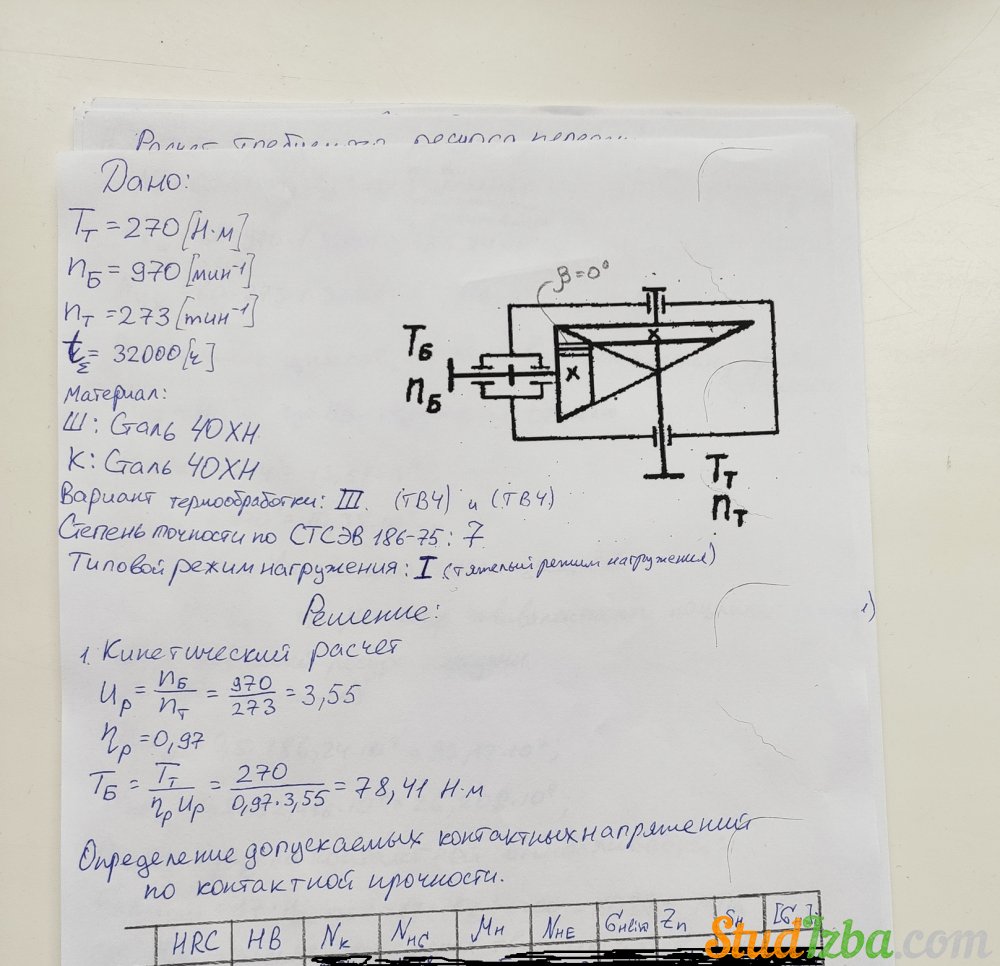 Расчет требуемого ресурса
Дано:
T_T = 270 [Н·м]
n_Б = 970 [мин⁻¹]
n_T = 273 [мин⁻¹]
t_Σ = 32000 [ч]
Материал:
Ш: Сталь 40ХН
К: Сталь 40ХН
Вариант термообработки: III. (ТВЧ) и (ТВЧ)
Степень точности по СТСЭВ 186-75: 7
Типовой режим нагружения: I (тяжелый режим нагружения)
β=0°
T_Б
n_Б
x
x
T_T
n_T
Решение:
1)
1. Кинетический расчет
u_p = n_Б/n_T = 970/273 = 3,55
η_p = 0,97
T_Б = T_T/(η_p u_p) = 270/(0,97·3,55) = 78,41 Н·м
Определение допускаемых контактных напряжений
по контактной прочности.
HRC HB N_K N_HG M_H N_HE σ_Hlim Z_N S_H [σ_H]
StudIzba.com